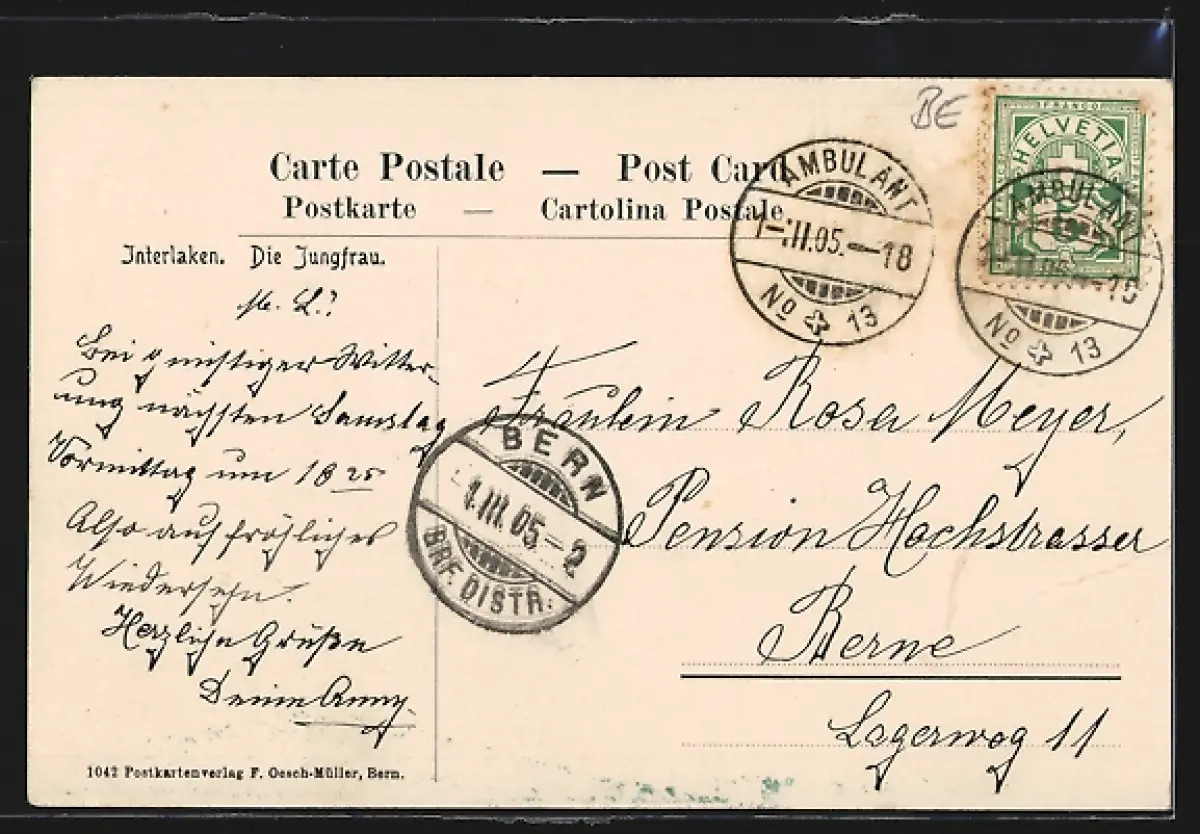 BE
FRANCO
HELVETIA
5
Carte Postale — Post Card
Postkarte — Cartolina Postale
AMBULANT
1-.III.05.-18
No 13
AMBULANT
III.05.
No 13
Interlaken. Die Jungfrau.
M. L.!
Bei günstiger Witter-
ung nächsten Samstag
Vormittag um 10 25
Also auf fröhliches
Wiedersehn.
Herzliche Grüße
Deine Anny.
BERN
1.III.05.-2
BRF. DISTR.
Fräulein Rosa Meyer,
Pension Hochstrasser
Berne
Lagerweg 11
1042 Postkartenverlag F. Oesch-Müller, Bern.